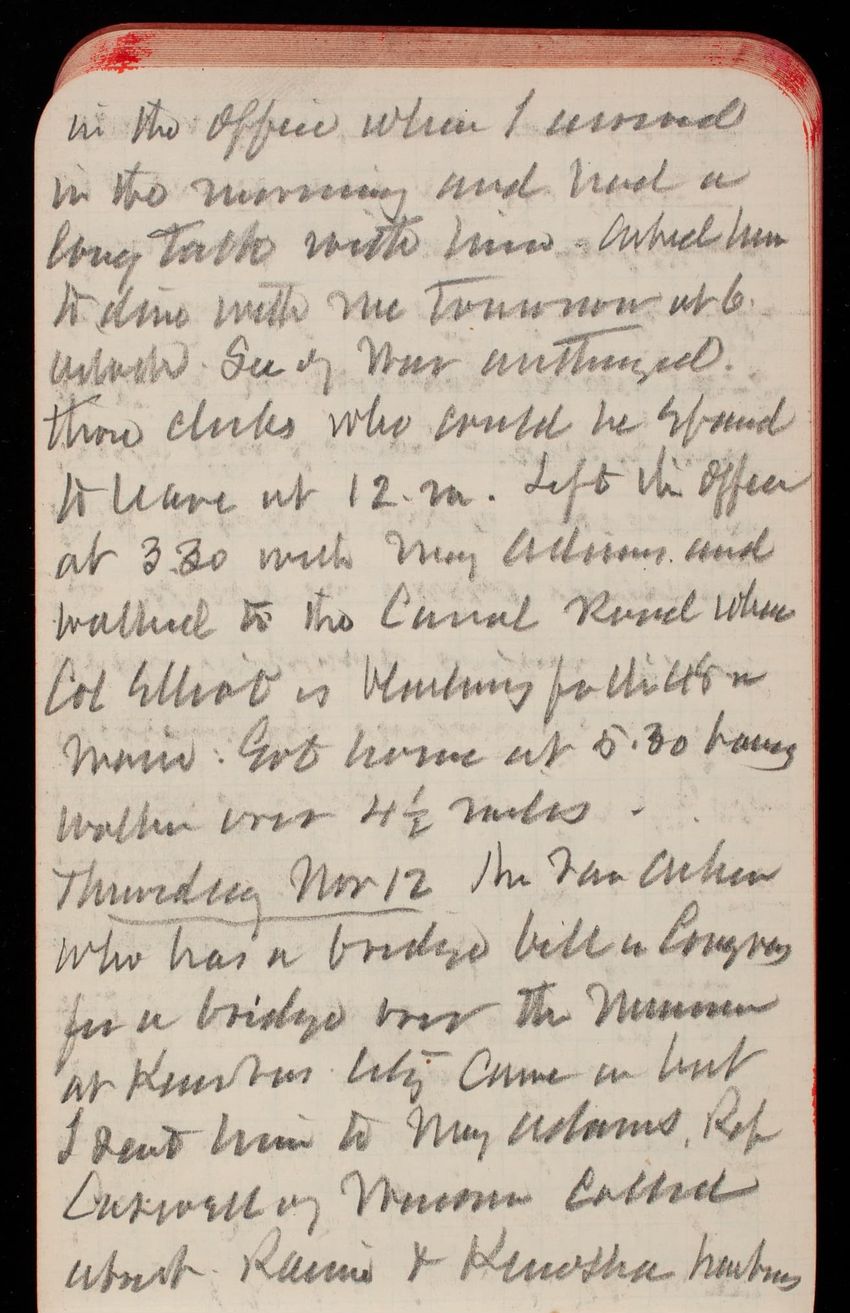 in the office when I arrived
in the morning and had a
long talk with him. Asked him
to dine with me tomorrow at 6.
oclock. Sec of War authorized.
those clerks who could be spared
to leave at 12. m. Left the office
at 3.30 with Maj Adams and
walked to the Canal Road where
Col Elliot is blasting for the 48 in
main. Got home at 5.30 having
walken over 4½ miles.
Thursday Nov 12 Mr Van Aken
who has a bridge bill in Congress
for a bridge over the Missouri
at Kansas City came in but
I sent him to Maj Adams. Rep
Caswell of Wisconsin called
about Racine & Kenosha harbors